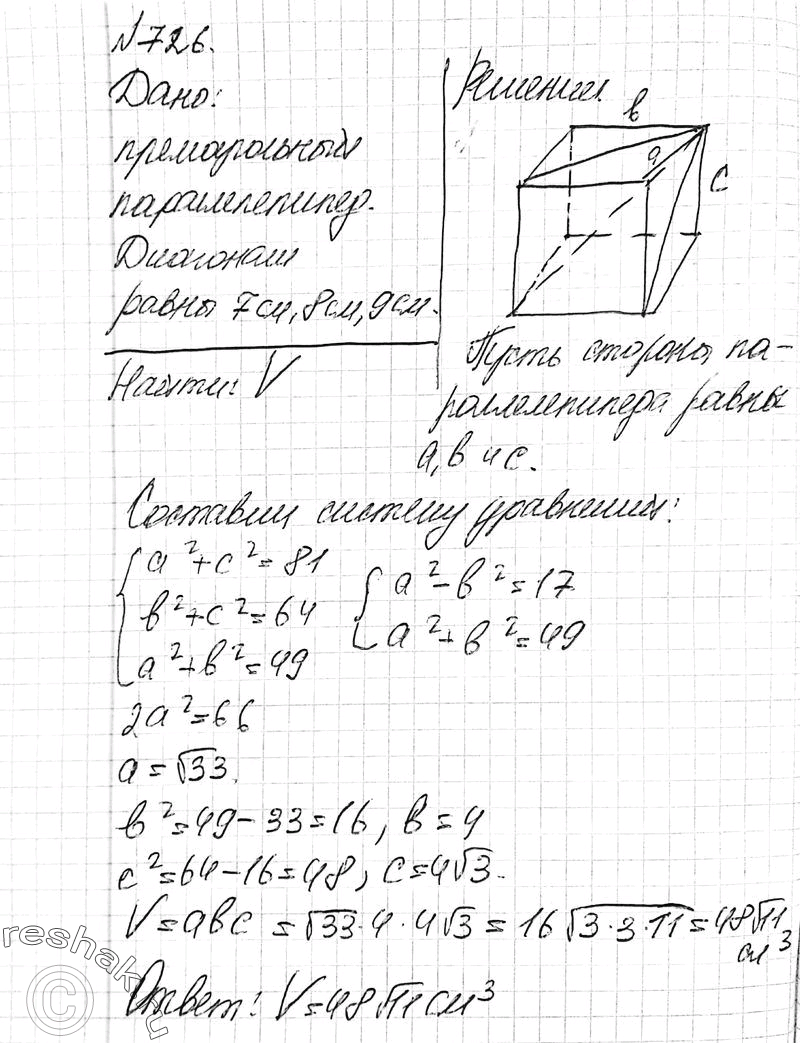 №726.
Дано:
прямоугольный
параллелепипед.
Диагонали
равны 7см, 8см, 9см.
Найти: V
Решение.
в
а
с
Пусть стороны па-
раллелепипеда равны
а, в и с.
Составим систему уравнений:
a²+c²=81
в²+c²=64
a²+в²=49
a²-в²=17
a²+в²=49
2a²=66
a=√33.
в²=49-33=16, в=4
c²=64-16=48, c=4√3.
V=aвc=√33·4·4√3=16√3·3·11=48√11
см³
Ответ: V=48√11 см³
reshak.ru
©